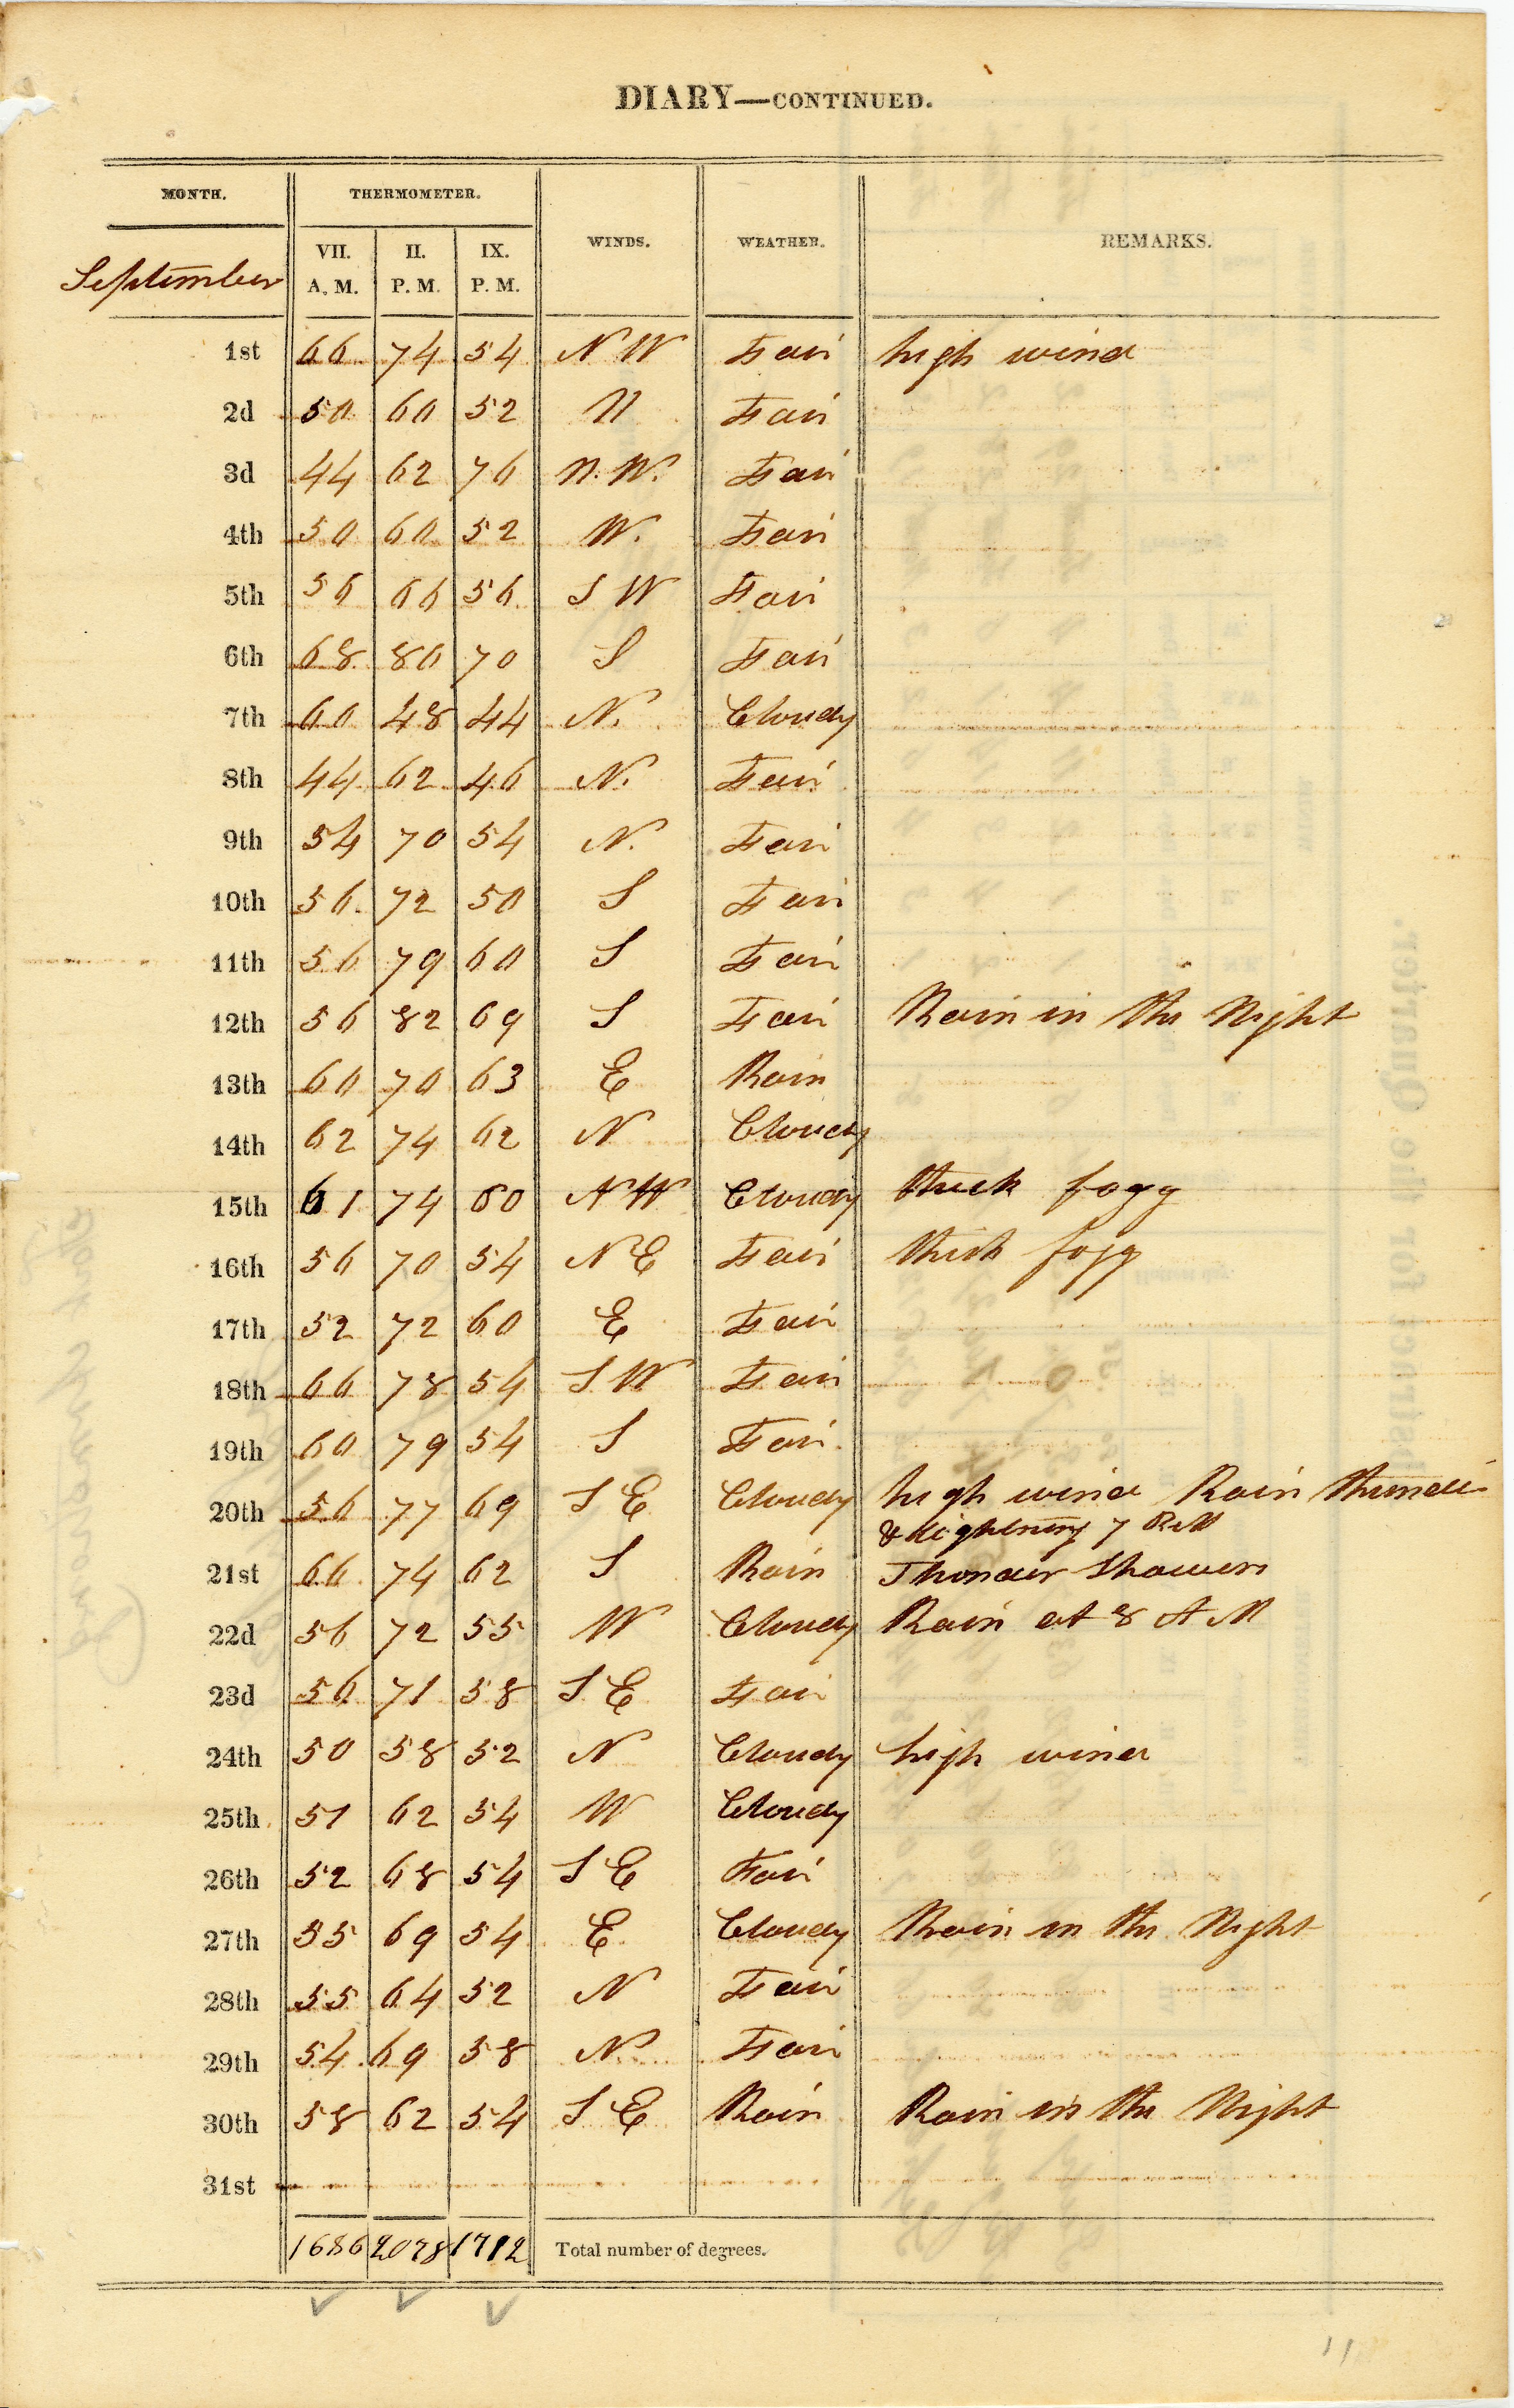 DIARY—CONTINUED.
MONTH. THERMOMETER. WINDS. WEATHER. REMARKS.
September VII. A.M. II. P.M. IX. P.M.
1st 66 74 54 N W Fair high wind
2d 50 60 52 N Fair
3d 44 62 76 N. W. Fair
4th 50 60 52 W. Fair
5th 56 66 56 S W Fair
6th 68 80 70 S Fair
7th 60 48 44 N. Cloudy
8th 44 62 46 N. Fair
9th 54 70 54 N. Fair
10th 56 72 50 S Fair
11th 56 79 60 S Fair
12th 56 82 69 S Fair Rain in the Night
13th 60 70 63 E Rain
14th 62 74 62 N Cloudy
15th 61 74 60 N W Cloudy thick fogg
16th 56 70 54 N E Fair thick fogg
17th 52 72 60 E Fair
18th 66 78 54 S W Fair
19th 60 79 54 S Fair.
20th 56 77 69 S E Cloudy high wind Rain thunder
& lightning 7 P M
21st 66 74 62 S Rain Thonder Showers
22d 56 72 55 W Cloudy Rain at 8 A M
23d 56 71 58 S E Fair
24th 50 58 52 N Cloudy high wind
25th 51 62 54 W Cloudy
26th 52 68 54 S E Fair
27th 55 69 54 E Cloudy Rain in the Night
28th 55 64 52 N Fair
29th 54 69 58 N Fair
30th 58 62 54 S E Rain Rain in the Night
31st
1686 2078 1712 Total number of degrees.
11